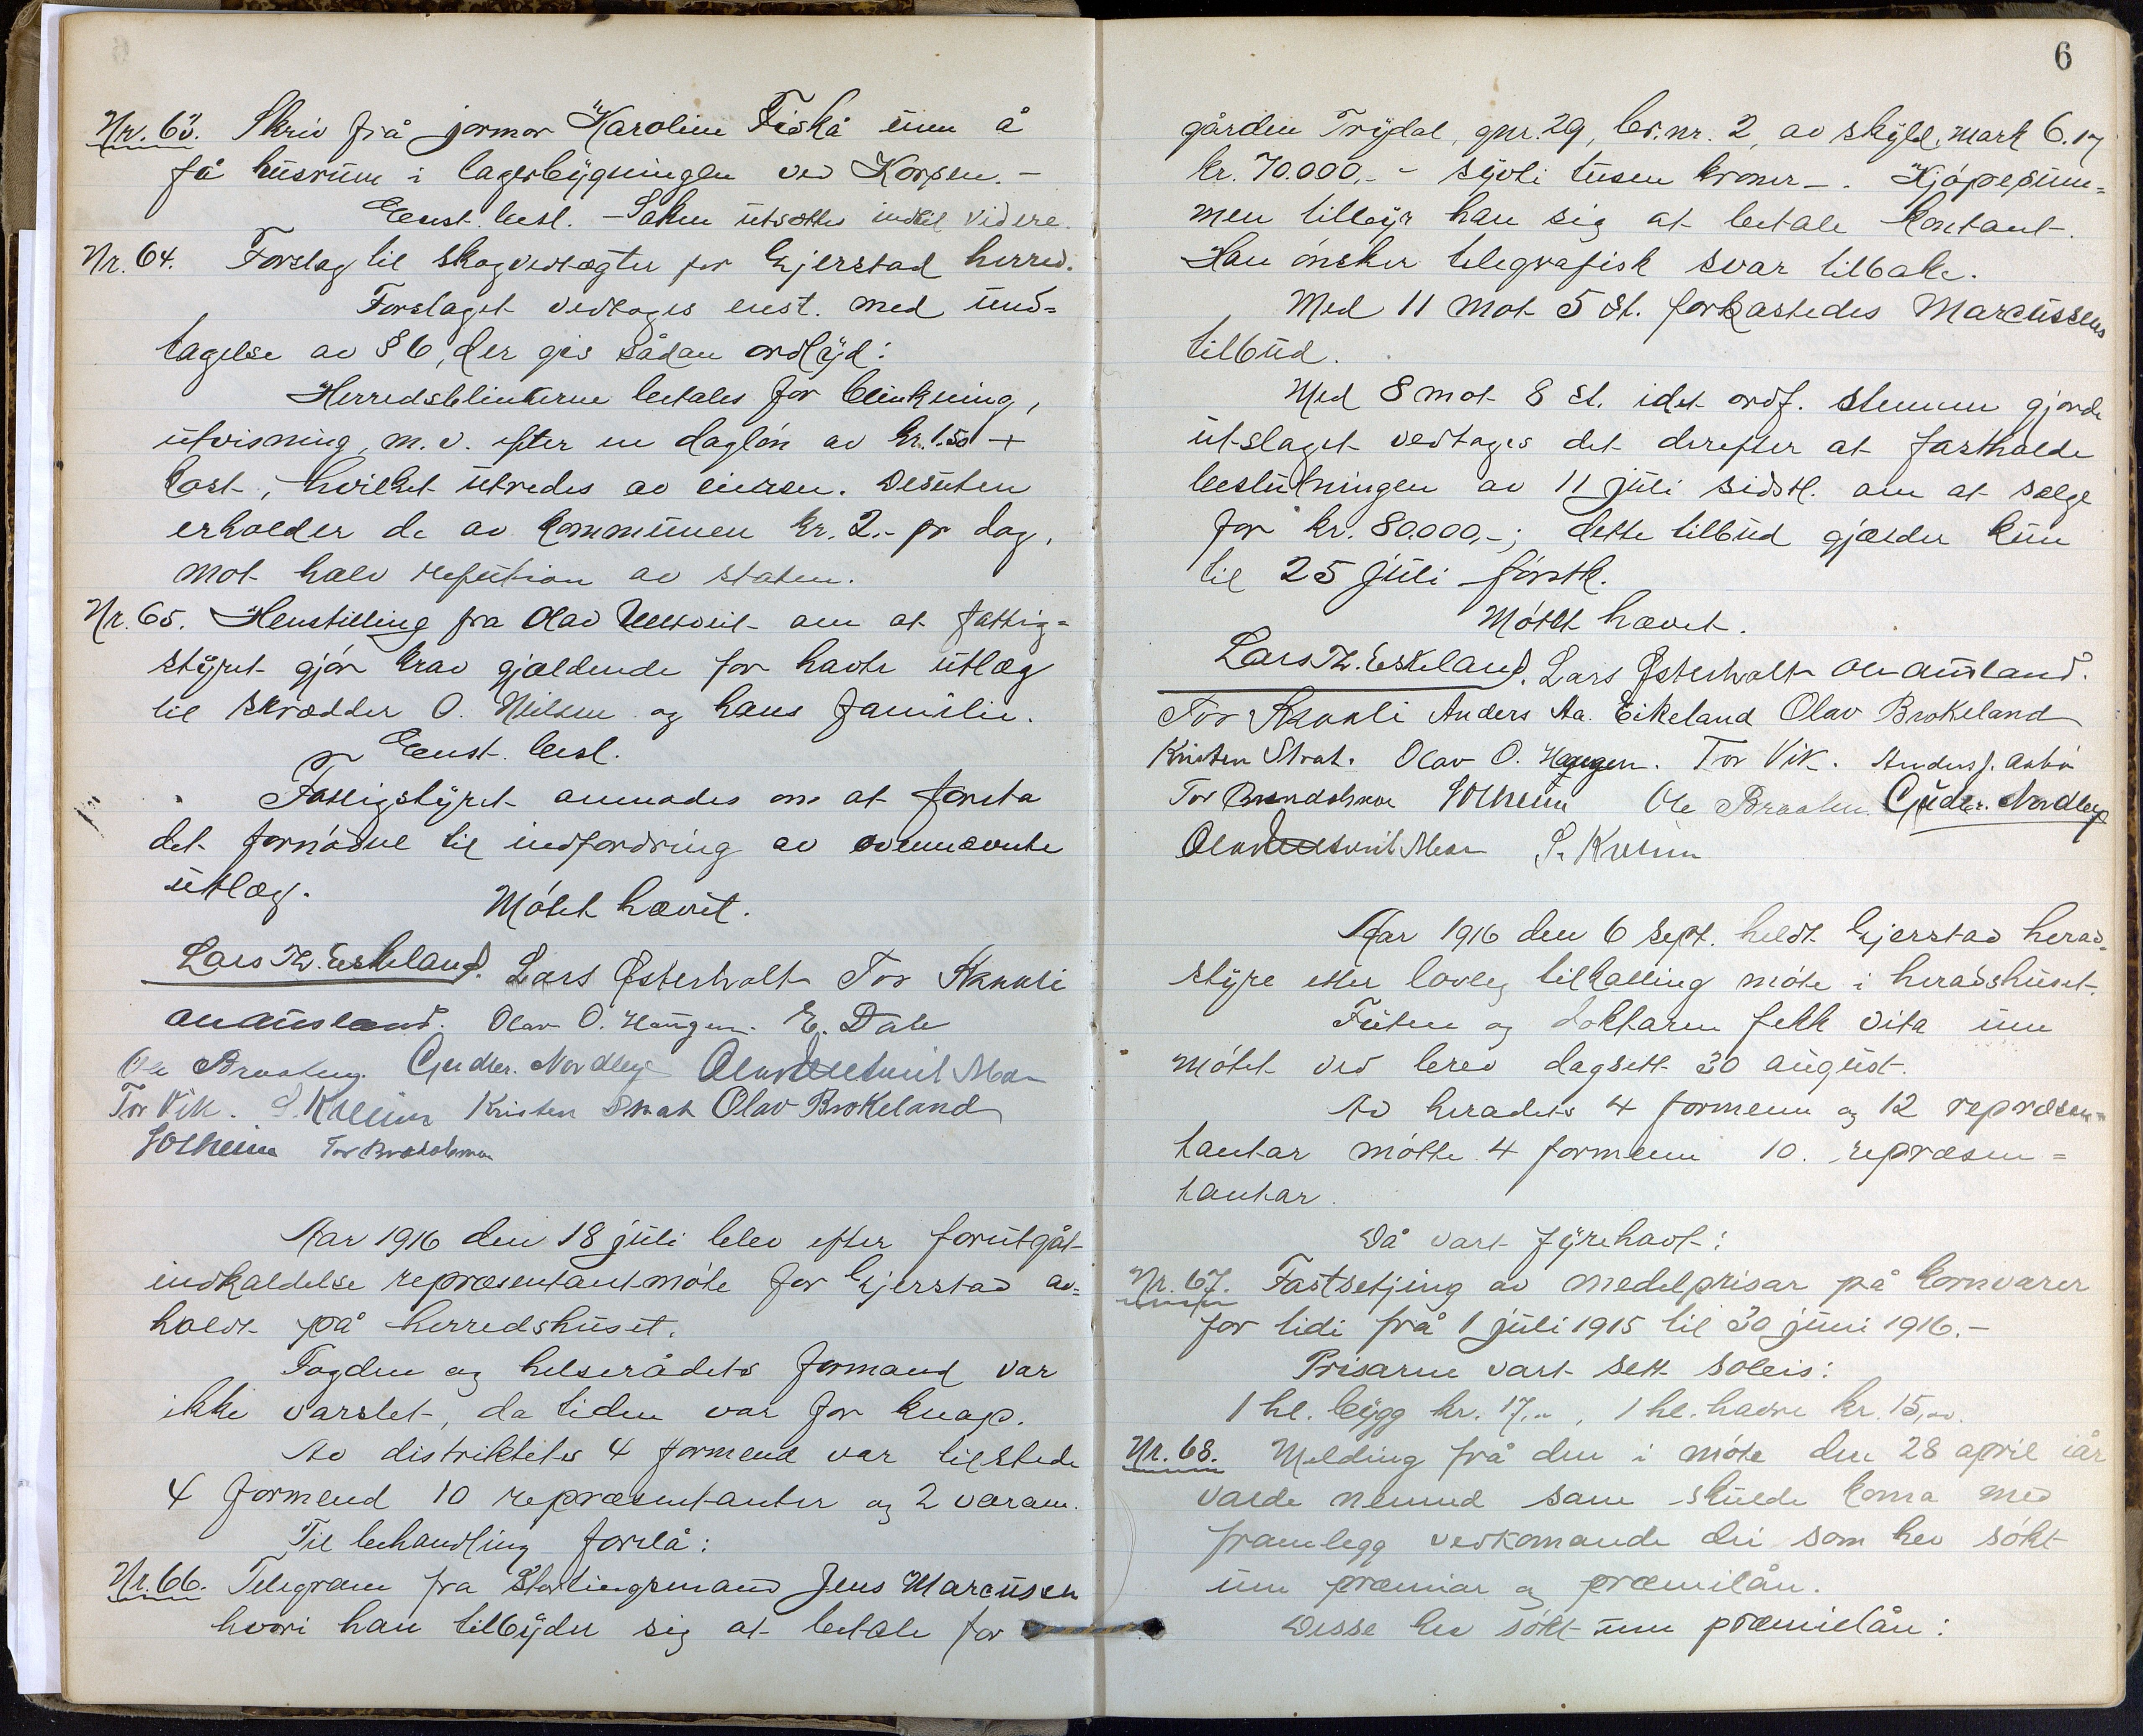 Nr. 63. Skriv frå jormor Karoline Fiskå um å
få husrum i lagerbygningen ved Korpen. -
Enst. besl. - Saken utsættes indtil videre.
Nr. 64. Forslag til skogvedtægter for Gjerstad herred.
Forslaget vedtoges enst. med und=
tagelse av § 6, der gis sådan ordlyd:
Herredsblinkerne betales for blinkning,
utvisning, m. v. efter en dagløn av kr. 1.50 +
kost, hvilket utredes av eieren. Desuten
erholder de av kommunen kr. 2.- pr dag,
mot halv refution av staten.
Nr. 65. Henstilling fra Olav Ulltveit om at fattig=
styret gjør krav gjældende for havte utlæg
til skrædder O. Nilsen og hans familie.
Enst. besl.
Fattigstyret anmodes om at foreta
det fornødne til indfordring av ovennævnte
utlæg.
Møtet hævet.
Lars Th. Eskeland. Lars Østerholt Tor Skaali
O A Ausland. Olav O. Haugen. E. Dale
Ole Braaten. Gudbr. Nordbø Olav Ulltveit Moe
Tor Vik. S. Kveim Kristen Strat Olav Brokeland
Solheim Tor Brændsmoe
Aar 1916 den 18 juli blev efter forutgåt
indkaldelse repræsentantmøte for Gjerstad av=
holdt på herredshuset.
Fogden og helserådets formand var
ikke varslet, da tiden var for knap.
Av distriktets 4 formend var tilstede
4 formend 10 repræsentanter og 2 varam.
Til behandling forelå:
Nr. 66. Telegram fra Stortingsmand Jens Marcusen
hvori han tilbyder sig at betale for
6
gården Trydal, gnr. 29, br.nr. 2, av skyld. mark 6.17
kr. 70.000,- - sytti tusen kroner -. Kjøpesum=
men tilbyr han sig at betale kontant.
Han ønsker telegrafisk svar tilbake.
Med 11 mot 5 st. forkastedes Marcussens
tilbud.
Med 8 mot 8 st. idet ordf. stemme gjorde
utslaget vedtoges det derefter at fastholde
beslutningen av 11 juli sidstl. om at sælge
for kr. 80.000,-; dette tilbud gjælder kun
til 25 juli førstk.
Møtet hævet.
Lars Th. Eskeland. Lars Østerholt O A Ausland.
Tor Skaali Anders Aa. Eikeland Olav Brokeland
Kristen Strat. Olav O. Haugen. Tor Vik. Anders J. Asbø
Tor Brændsmoe Solheim Ole Braaten. Gudbr. Nordbø
Olav Ulltveit Moe S. Kveim
Aar 1916 den 6 sept. heldt Gjerstad herad=
styre etter lovleg tilkalling møte i heradshuset.
Futen og doktaren fekk vita um
møtet ved brev dagsett 30 august.
Av heradets 4 formenn og 12 repræsen=
tantar møtte 4 formenn 10. repræsen=
tantar.
Då vart fyrehavt:
Nr. 67. Fastsetjing av medelprisar på kornvarer
for tidi frå 1 juli 1915 til 30 juni 1916. -
Prisarne vart sett soleis:
1 hl. bygg kr. 17,00, 1 hl. havre kr. 15,00.
Nr. 68. Melding frå den i møte den 28 april iår
valde nemnd som skulde koma med
framlegg vedkomande dei som hev søkt
um præmiar og præmilån.
Desse hev søkt um præmielån: